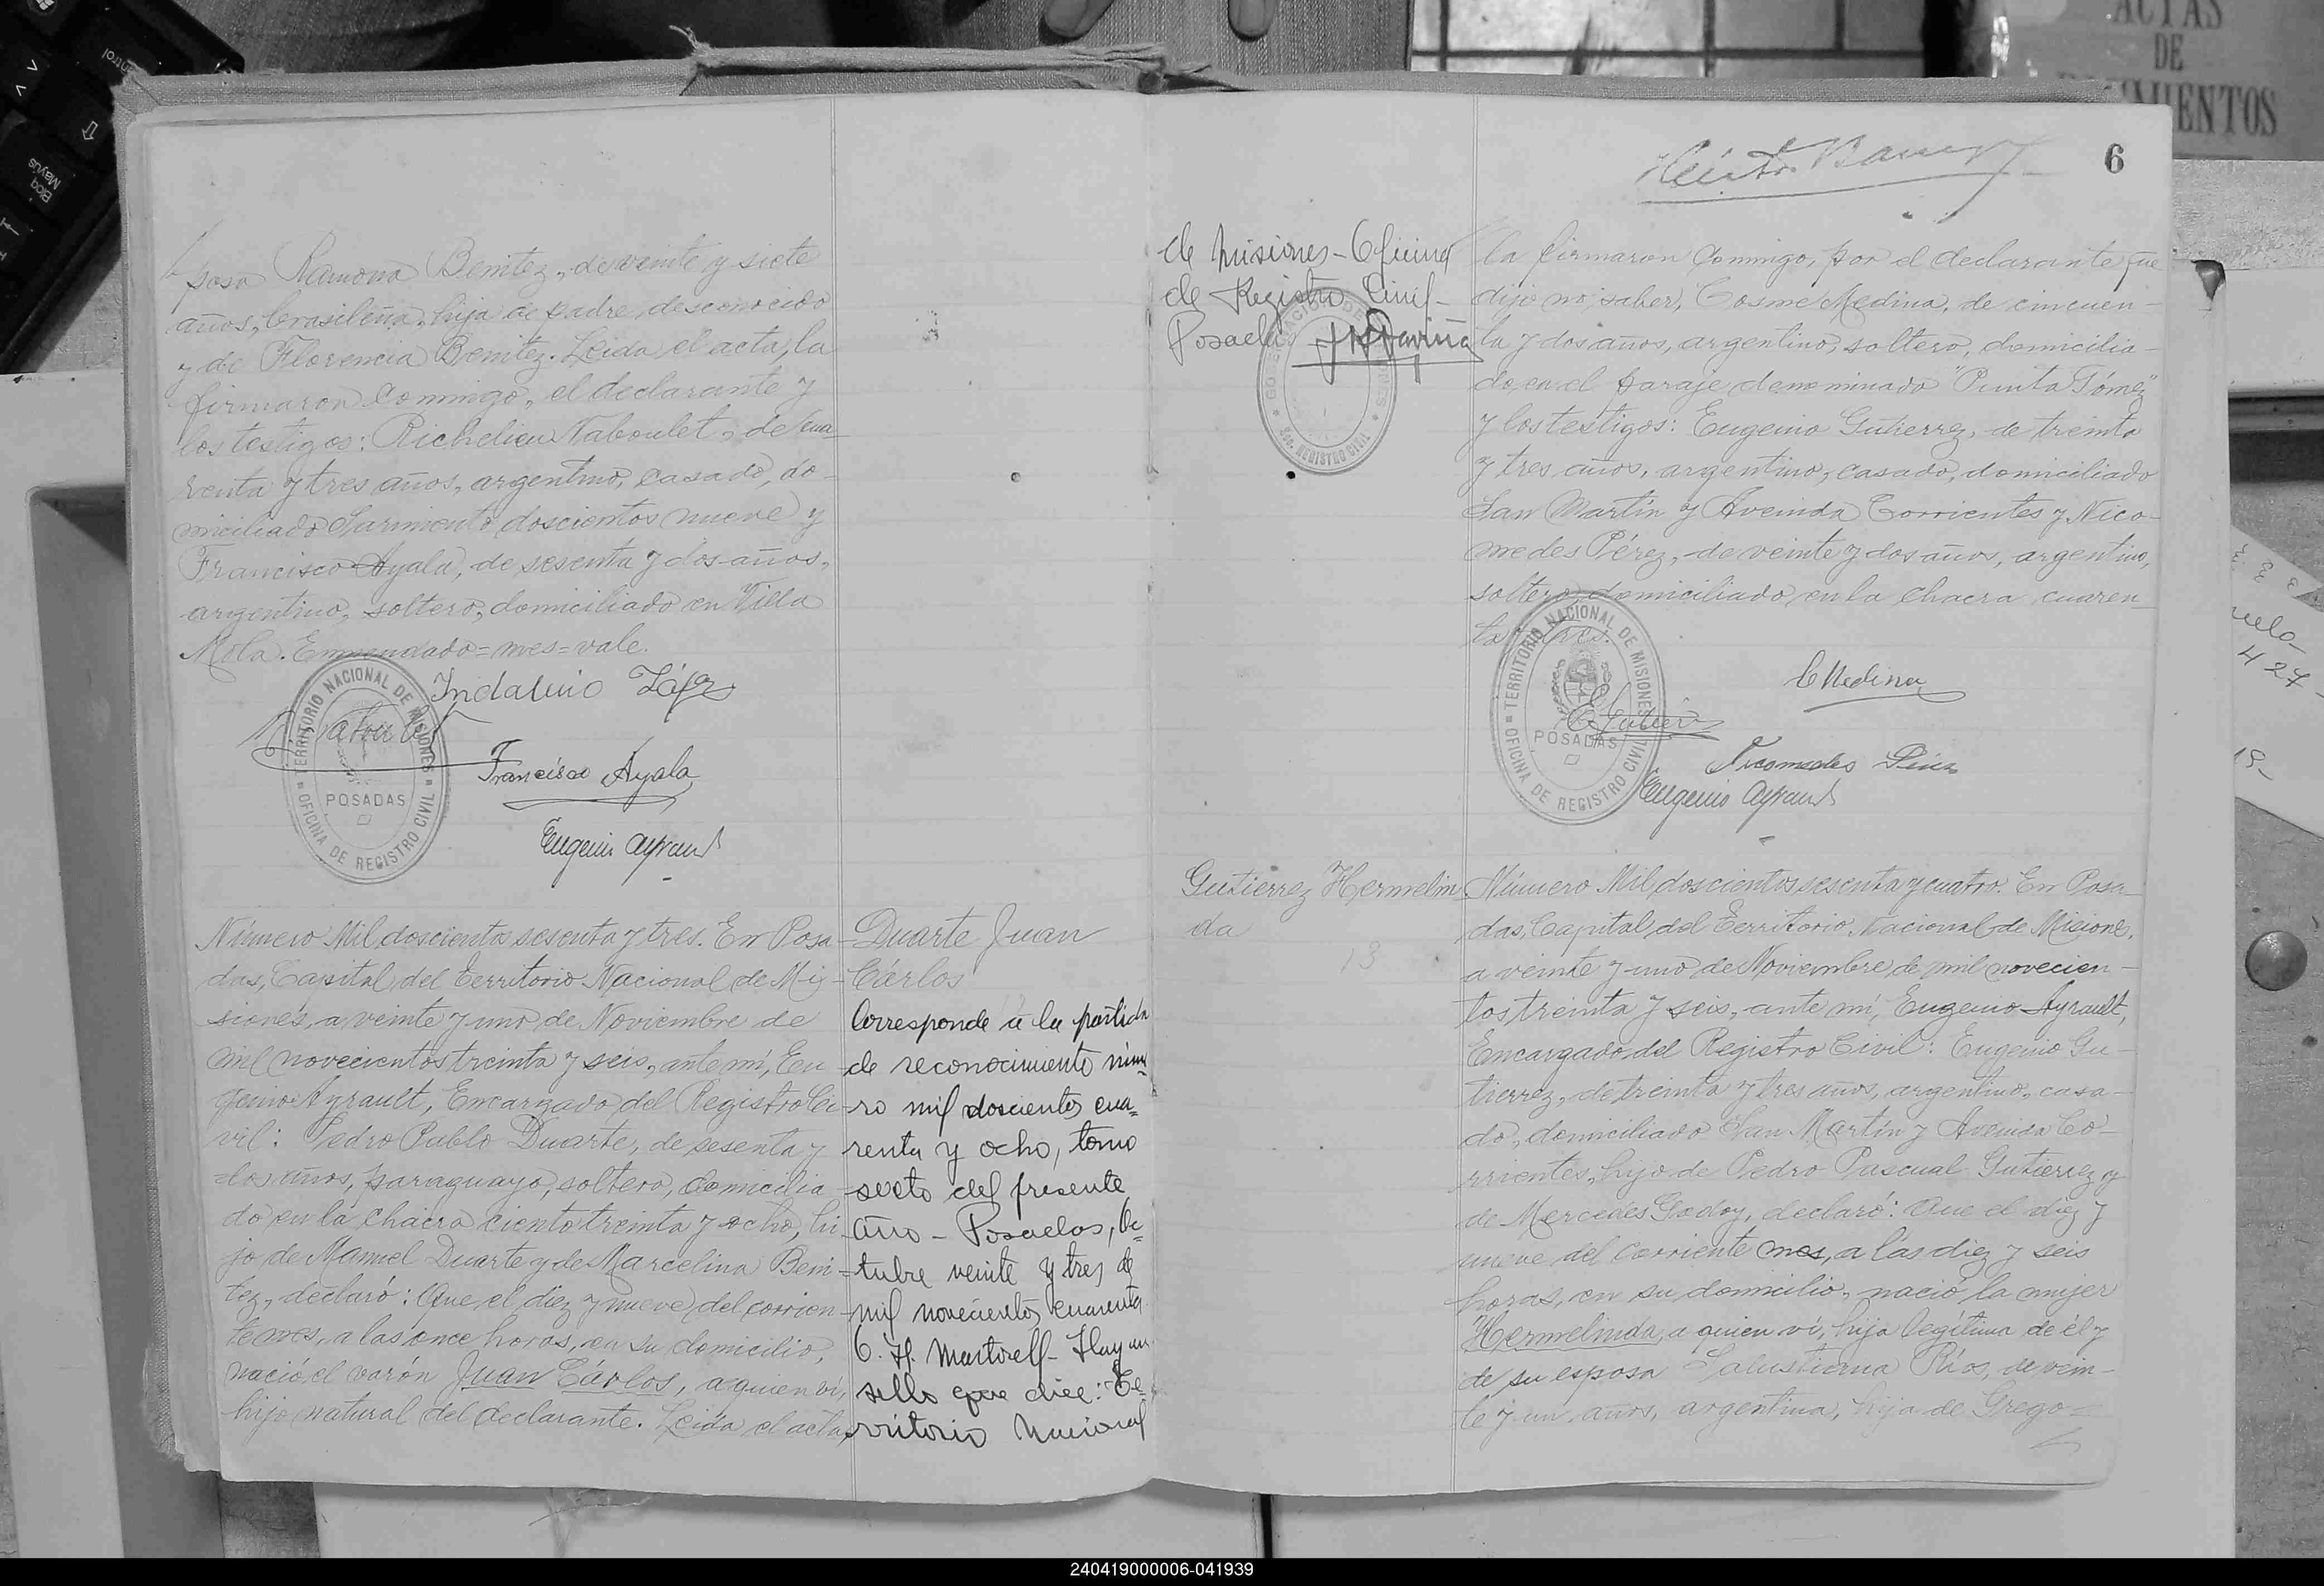 posa Ramona Benitez, de veinte y siete
años, brasileña, hija de padre desconocido
y de Florencia Benitez. Leida el acta, la
firmaron conmigo, el declarante y
los testigos: Richelieu Naboulet, de cua-
renta y tres años, argentino, casado, do-
miciliado Sarmiento doscientos nueve y
Francisco Ayala, de sesenta y dos años,
argentino, soltero, domiciliado en Villa
Mola. Enmendado=mes=vale.
Indalecio López
Francisco Ayala
Eugenio Ayrault
TERRITORIO NACIONAL DE MISIONES
POSADAS
OFICINA DE REGISTRO CIVIL
Número Mil doscientos sesenta y tres. En Posa-
das, Capital del territorio Nacional de Mi-
siones, a veinte y uno de Noviembre de
mil novecientos treinta y seis, ante mí, Eu-
genio Ayrault, Encargado del Registro Ci-
vil: Pedro Pablo Duarte, de sesenta y
dos años, paraguayo, soltero, domicilia-
do en la chacra ciento treinta y ocho, hi-
jo de Manuel Duarte y de Marcelina Beni-
tez, declaró: Que el diez y nueve del corrien-
te mes, a las once horas, en su domicilio,
nació el varón Juan Cárlos, a quien ví,
hijo natural del declarante. Leida el acta,
Duarte Juan
Cárlos
Corresponde a la partida
de reconocimiento núme
ro mil doscientos cua=
renta y ocho, tomo
sexto del presente
año - Posadas, Oc=
tubre veinte y tres de
mil novecientos cuarenta.
C. H. Martorell - Hay un
sello que dice: Te-
rritorio Nacional
de Misiones - Oficina
de Registro Civil -
Posadas
REGISTRO CIVIL
6
la firmaron conmigo, por el declarante que
dijo no saber, Cosme Medina, de cincuen-
ta y dos años, argentino, soltero, domicilia-
do en el paraje denominado "Punta Gómez"
y los testigos: Eugenio Gutierrez, de treinta
y tres años, argentino, casado, domiciliado
San Martín y Avenida Corrientes y Nico-
medes Pérez, de veinte y dos años, argentino,
soltero, domiciliado en la chacra cuaren
ta y tres.
C Medina
E Gutierrez
Nicomedes Pérez
Eugenio Ayrault
TERRITORIO NACIONAL DE MISIONES
POSADAS
OFICINA DE REGISTRO CIVIL
Gutierrez Hermelin
da
13
Número Mil doscientos sesenta y cuatro. En Posa-
das, Capital del Territorio Nacional de Misiones,
a veinte y uno de Noviembre de mil novecien-
tos treinta y seis, ante mí, Eugenio Ayrault,
Encargado del Registro Civil: Eugenio Gu-
tierrez, de treinta y tres años, argentino, casa-
do, domiciliado San Martín y Avenida Co-
rrientes, hijo de Pedro Pascual Gutierrez y
de Mercedes Godoy, declaró: Que el diez y
nueve del corriente mes, a las diez y seis
horas, en su domicilio, nació la mujer
Hermelinda, a quien ví, hija legítima de él y
de su esposa Salustiana Ríos, de vein-
te y un años, argentina, hija de Grego=
ACTAS
DE
240419000006-041939